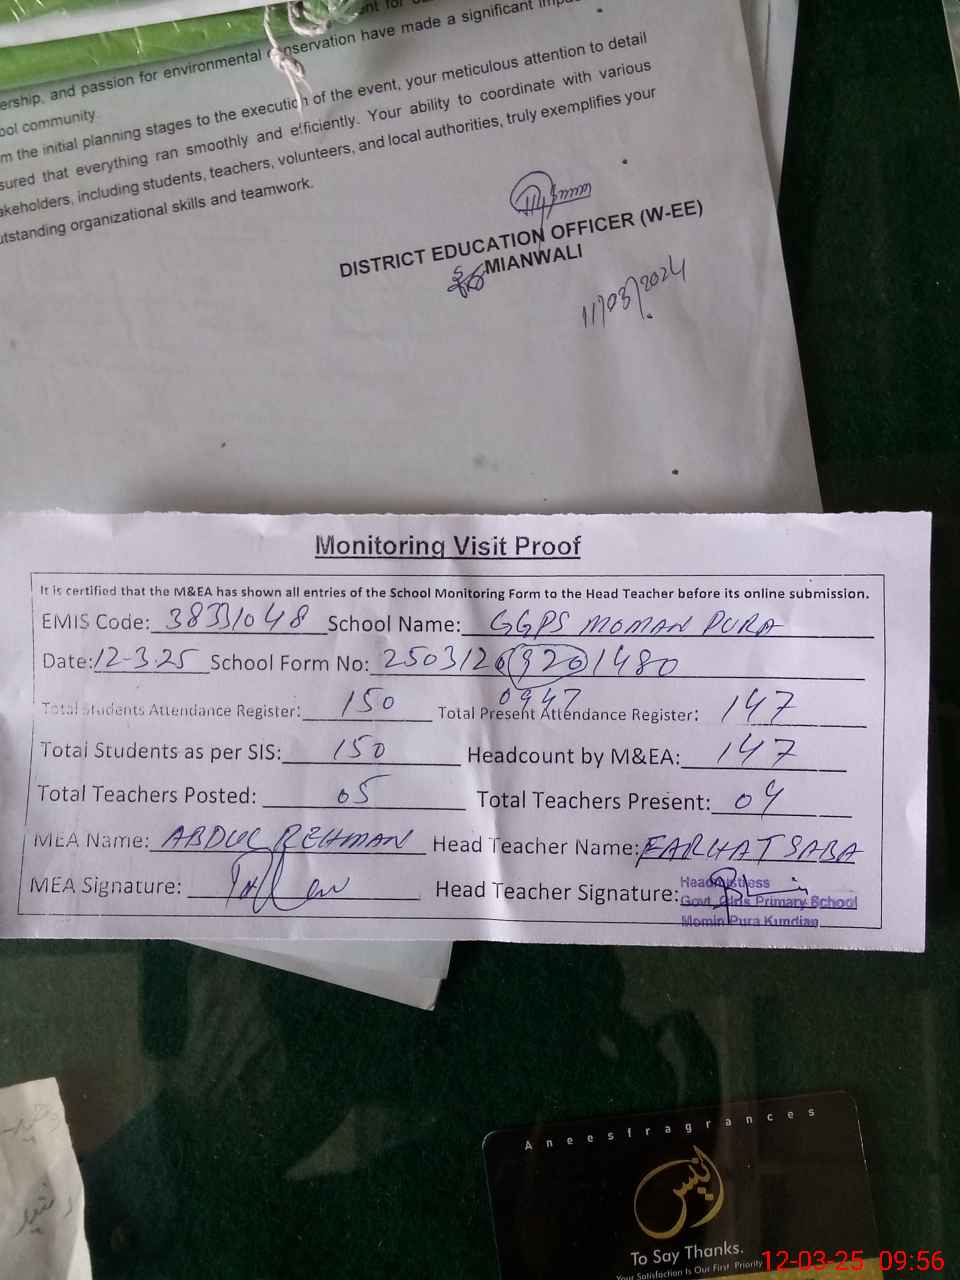 ership, and passion for environmental conservation have made a significant
ool community.
m the initial planning stages to the execution of the event, your meticulous attention to detail
sured that everything ran smoothly and efficiently. Your ability to coordinate with various
akeholders, including students, teachers, volunteers, and local authorities, truly exemplifies your
utstanding organizational skills and teamwork.
DISTRICT EDUCATION OFFICER (W-EE)
MIANWALI
11/03/2024
Monitoring Visit Proof
It is certified that the M&EA has shown all entries of the School Monitoring Form to the Head Teacher before its online submission.
EMIS Code: 38331048 School Name: GGPS MOMAN PURA
Date: 12-3-25 School Form No: 25031209201480
0947
Total Students Attendance Register: 150 Total Present Attendance Register: 147
Total Students as per SIS: 150 Headcount by M&EA: 147
Total Teachers Posted: 05 Total Teachers Present: 04
MEA Name: ABDUL REHMAN Head Teacher Name: FARHAT SABA
MEA Signature: Head Teacher Signature:
Headmistress
Govt. Girls Primary School
Momin Pura Kundian
Aneesfragrances
انیس
To Say Thanks.
Your Satisfaction Is Our First Priority
12-03-25 09:56